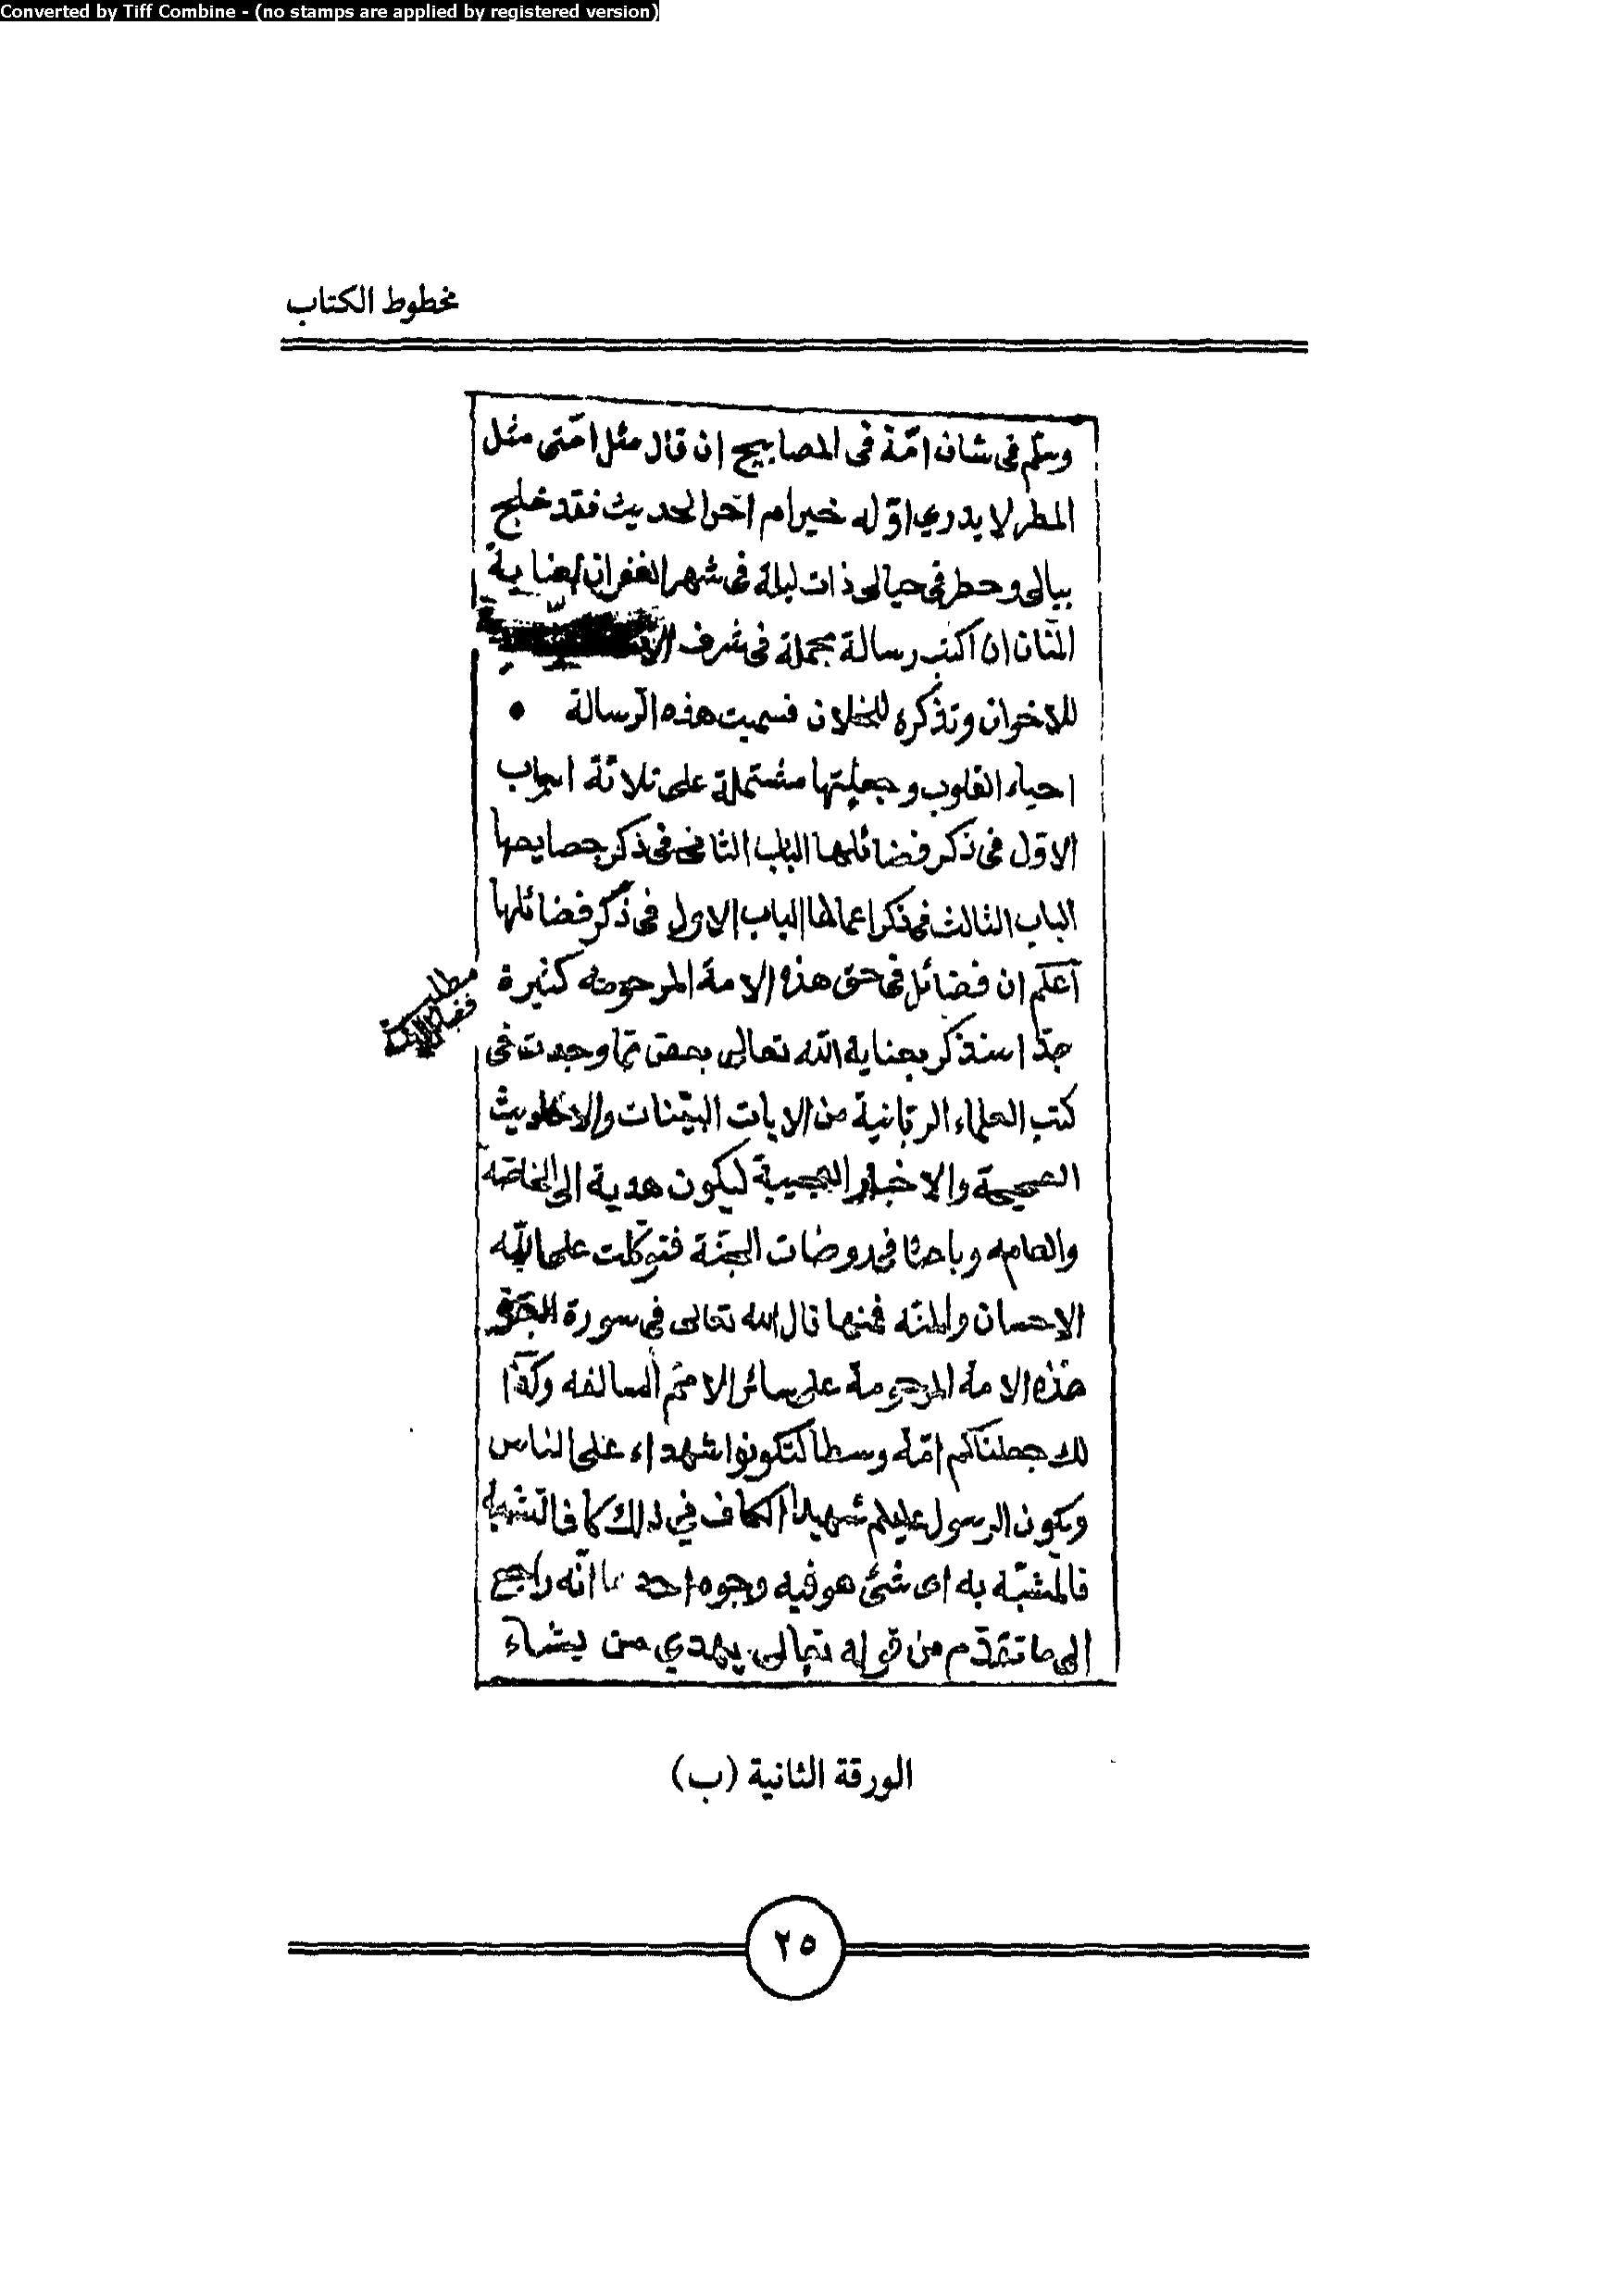 Converted by Tiff Combine - (no stamps are applied by registered version)
مخطوط الكتاب
وسلّم فى شان امّة فى المصابيح ان قال مثل امّتى مثل
المطر لا يدري اوّله خير ام آخر الحديث فقد خلج
ببالى وخطر فى حيالى ذات ليلة فى شهر الغفران
المنّان ان اكتب رسالة مجملة فى شرف
للاخوان وتذكرة للخلان فسميت هذه الرّسالة
احياء القلوب وجعلتها مشتملة على ثلاثة ابواب
الاوّل فى ذكر فضائلها الباب الثانى فى ذكر خصايصها
الباب الثالث فى ذكر اعمالها الباب الاول فى ذكر فضائلها
آعلم ان فضائل فى حق هذه الامة المرحومة كثيرة
مطلب
جدّا سنذكر بعناية الله تعالى بعض ممّا وجدت فى
كتب العلماء الربّانية من الايات البيّنات والاحاديث
الصحيحة والاخبار العجيبة ليكون هدية الى الخاصّة
والعامه وباحثا فى روضات الجنّة فتوكّلت على الله
الاحسان والمنّه فمنها قال الله تعالى في سورة البقرة
هذه الامة المرحومة على سائر الامم السالفه وكذا
لك جعلناكم امّة وسطا لتكونوا شهداء على الناس
ويكون الرسول عليكم شهيدا الكاف في ذلك كاف التشبيه
فالمشبّه به اى شئ هو فيه وجوه احدها انّه راجع
الى ما تقدّم من قوله تعالى يهدي من يشاء
الورقة الثانية (ب)
٢٥